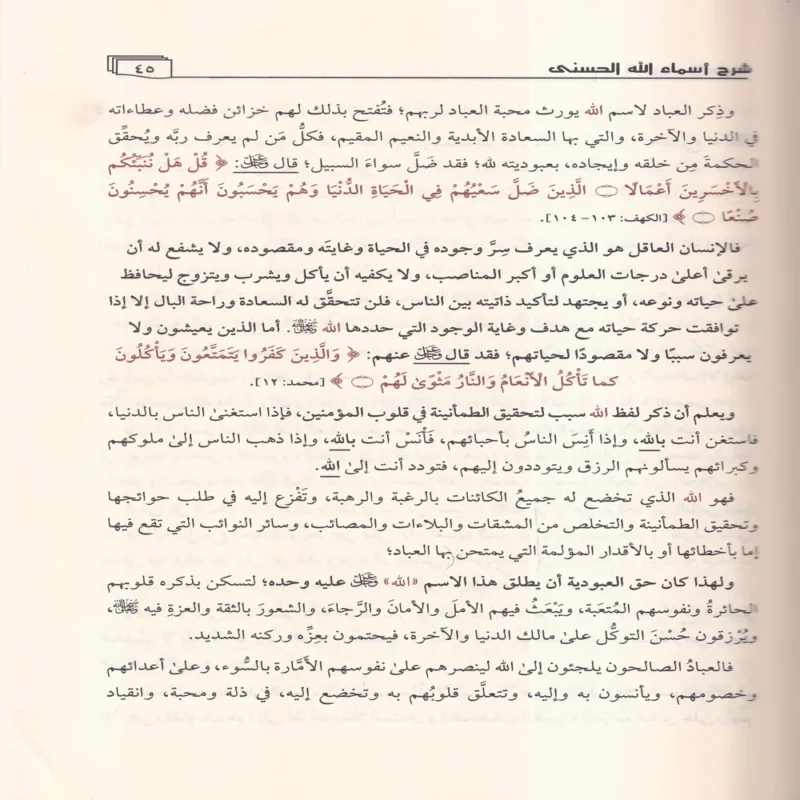 شرح أسماء الله الحسنى
٤٥
وذِكر العباد لاسم الله يورث محبة العباد لربهم؛ فتُفتح بذلك لهم خزائن فضله وعطاءاته
في الدنيا والآخرة، والتي بها السعادة الأبدية والنعيم المقيم، فكلُّ مَن لم يعرف ربَّه ويُحقِّق
الحكمةَ مِن خلقه وإيجاده، بعبوديته لله؛ فقد ضَلَّ سواءَ السبيل؛ قال ﷻ: ﴿ قُلْ هَلْ نُنَبِّئُكُم
بِالْأَخْسَرِينَ أَعْمَالًا ۝ الَّذِينَ ضَلَّ سَعْيُهُمْ فِي الْحَيَاةِ الدُّنْيَا وَهُمْ يَحْسَبُونَ أَنَّهُمْ يُحْسِنُونَ
صُنْعًا ۝ ﴾ [الكهف: ١٠٣- ١٠٤].
فالإنسان العاقل هو الذي يعرف سِرَّ وجوده في الحياة وغايتَه ومقصوده، ولا يشفع له أن
يرقىٰ أعلىٰ درجات العلوم أو أكبر المناصب، ولا يكفيه أن يأكل ويشرب ويتزوج ليحافظ
علىٰ حياته ونوعه، أو يجتهد لتأكيد ذاتيته بين الناس، فلن تتحقَّق له السعادة وراحة البال إلا إذا
توافقت حركة حياته مع هدف وغاية الوجود التي حددها الله. أما الذين يعيشون ولا
يعرفون سببًا ولا مقصودًا لحياتهم؛ فقد قال ﷻ عنهم: ﴿ وَالَّذِينَ كَفَرُوا يَتَمَتَّعُونَ وَيَأْكُلُونَ
كما تَأْكُلُ الْأَنْعَامُ وَالنَّارُ مَثْوًى لَهُمْ ۝ ﴾ [محمد: ١٢].
ويعلم أن ذكر لفظ الله سبب لتحقيق الطمأنينة في قلوب المؤمنين، فإذا استغنىٰ الناس بالدنيا،
فاستغن أنت بالله، وإذا أَنِسَ الناسُ بأحبائهم، فَأْنَسْ أنت بالله، وإذا ذهب الناس إلىٰ ملوكهم
وكبرائهم يسألونهم الرزق ويتوددون إليهم، فتودد أنت إلىٰ الله.
فهو الله الذي تخضع له جميعُ الكائنات بالرغبة والرهبة، وتَفْزع إليه في طلب حوائجها
وتحقيق الطمأنينة والتخلص من المشقات والبلاءات والمصائب، وسائر النوائب التي تقع فيها
إما بأخطائها أو بالأقدار المؤلمة التي يمتحن بها العباد؛
ولهذا كان حق العبودية أن يطلق هذا الاسم «الله» ﷻ عليه وحده؛ لتسكن بذكره قلوبهم
الحائرةُ ونفوسهم المُتعَبة، ويَبْعَثُ فيهم الأملَ والأمانَ والرَّجاءَ، والشعورَ بالثقة والعزةِ فيه،
ويُرْزقون حُسْنَ التوكُّل علىٰ مالك الدنيا والآخرة، فيحتمون بعِزِّه وركنه الشديد.
فالعبادُ الصالحون يلجئون إلىٰ الله لينصرهم علىٰ نفوسهم الأمَّارة بالسُّوء، وعلىٰ أعدائهم
وخصومهم، ويأنسون به وإليه، وتتعلَّق قلوبُهم به وتخضع إليه، في ذلة ومحبة، وانقياد